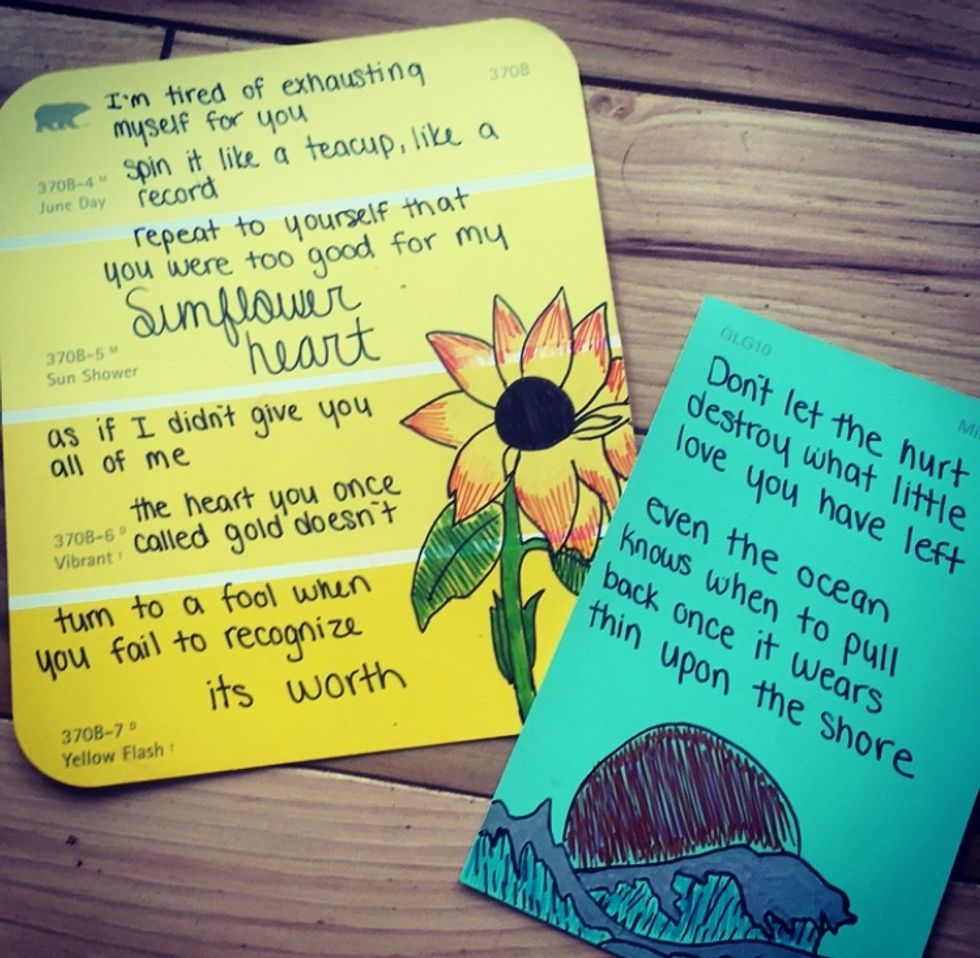 I'm tired of exhausting
370B
myself for you
spin it like a teacup, like a
370B-4 M
June Day
record
repeat to yourself that
you were too good for my
Sunflower
heart
370B-5 M
Sun Shower
as if I didn't give you
all of me
the heart you once
370B-6 D
called gold doesn't
Vibrant !
turn to a fool when
you fail to recognize
its worth
370B-7 D
Yellow Flash !
GLG10
Don't let the hurt
destroy what little
love you have left
even the ocean
knows when to pull
back once it wears
thin upon the shore